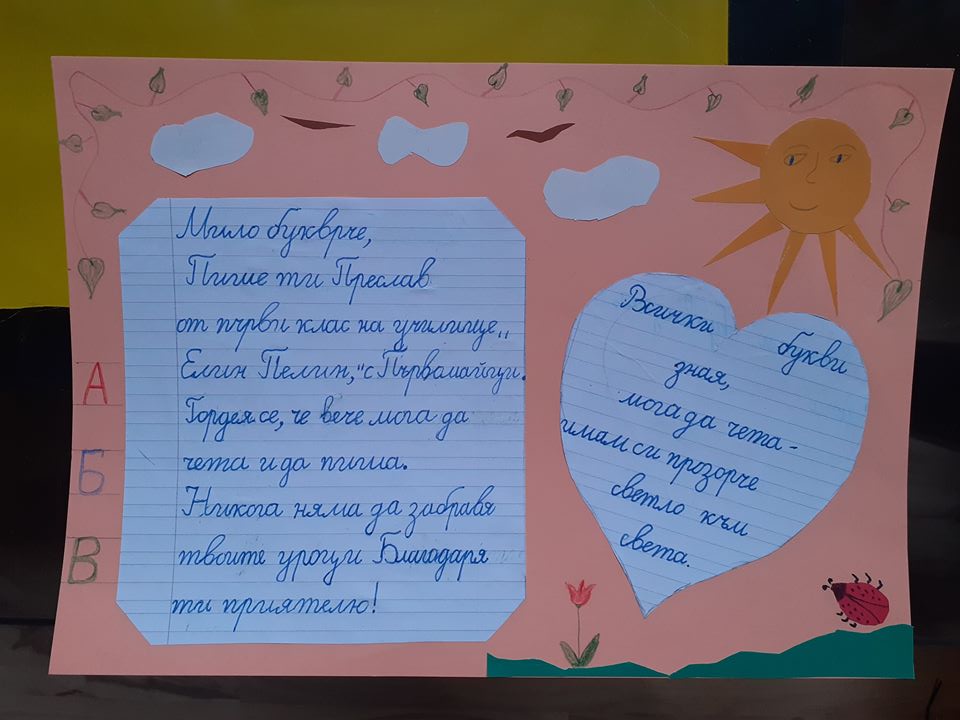 Мило букврче,
Пише ти Преслав
от първи клас на училище„
Елин Пелин,"с Първомайци.
Гордея се, че вече мога да
чета и да пиша.
Никога няма да забравя
твоите уроци Благодаря
ти приятелю!
Всички букви
зная,
мога да чета -
имам си прозорче
светло към
света.
А
Б
В